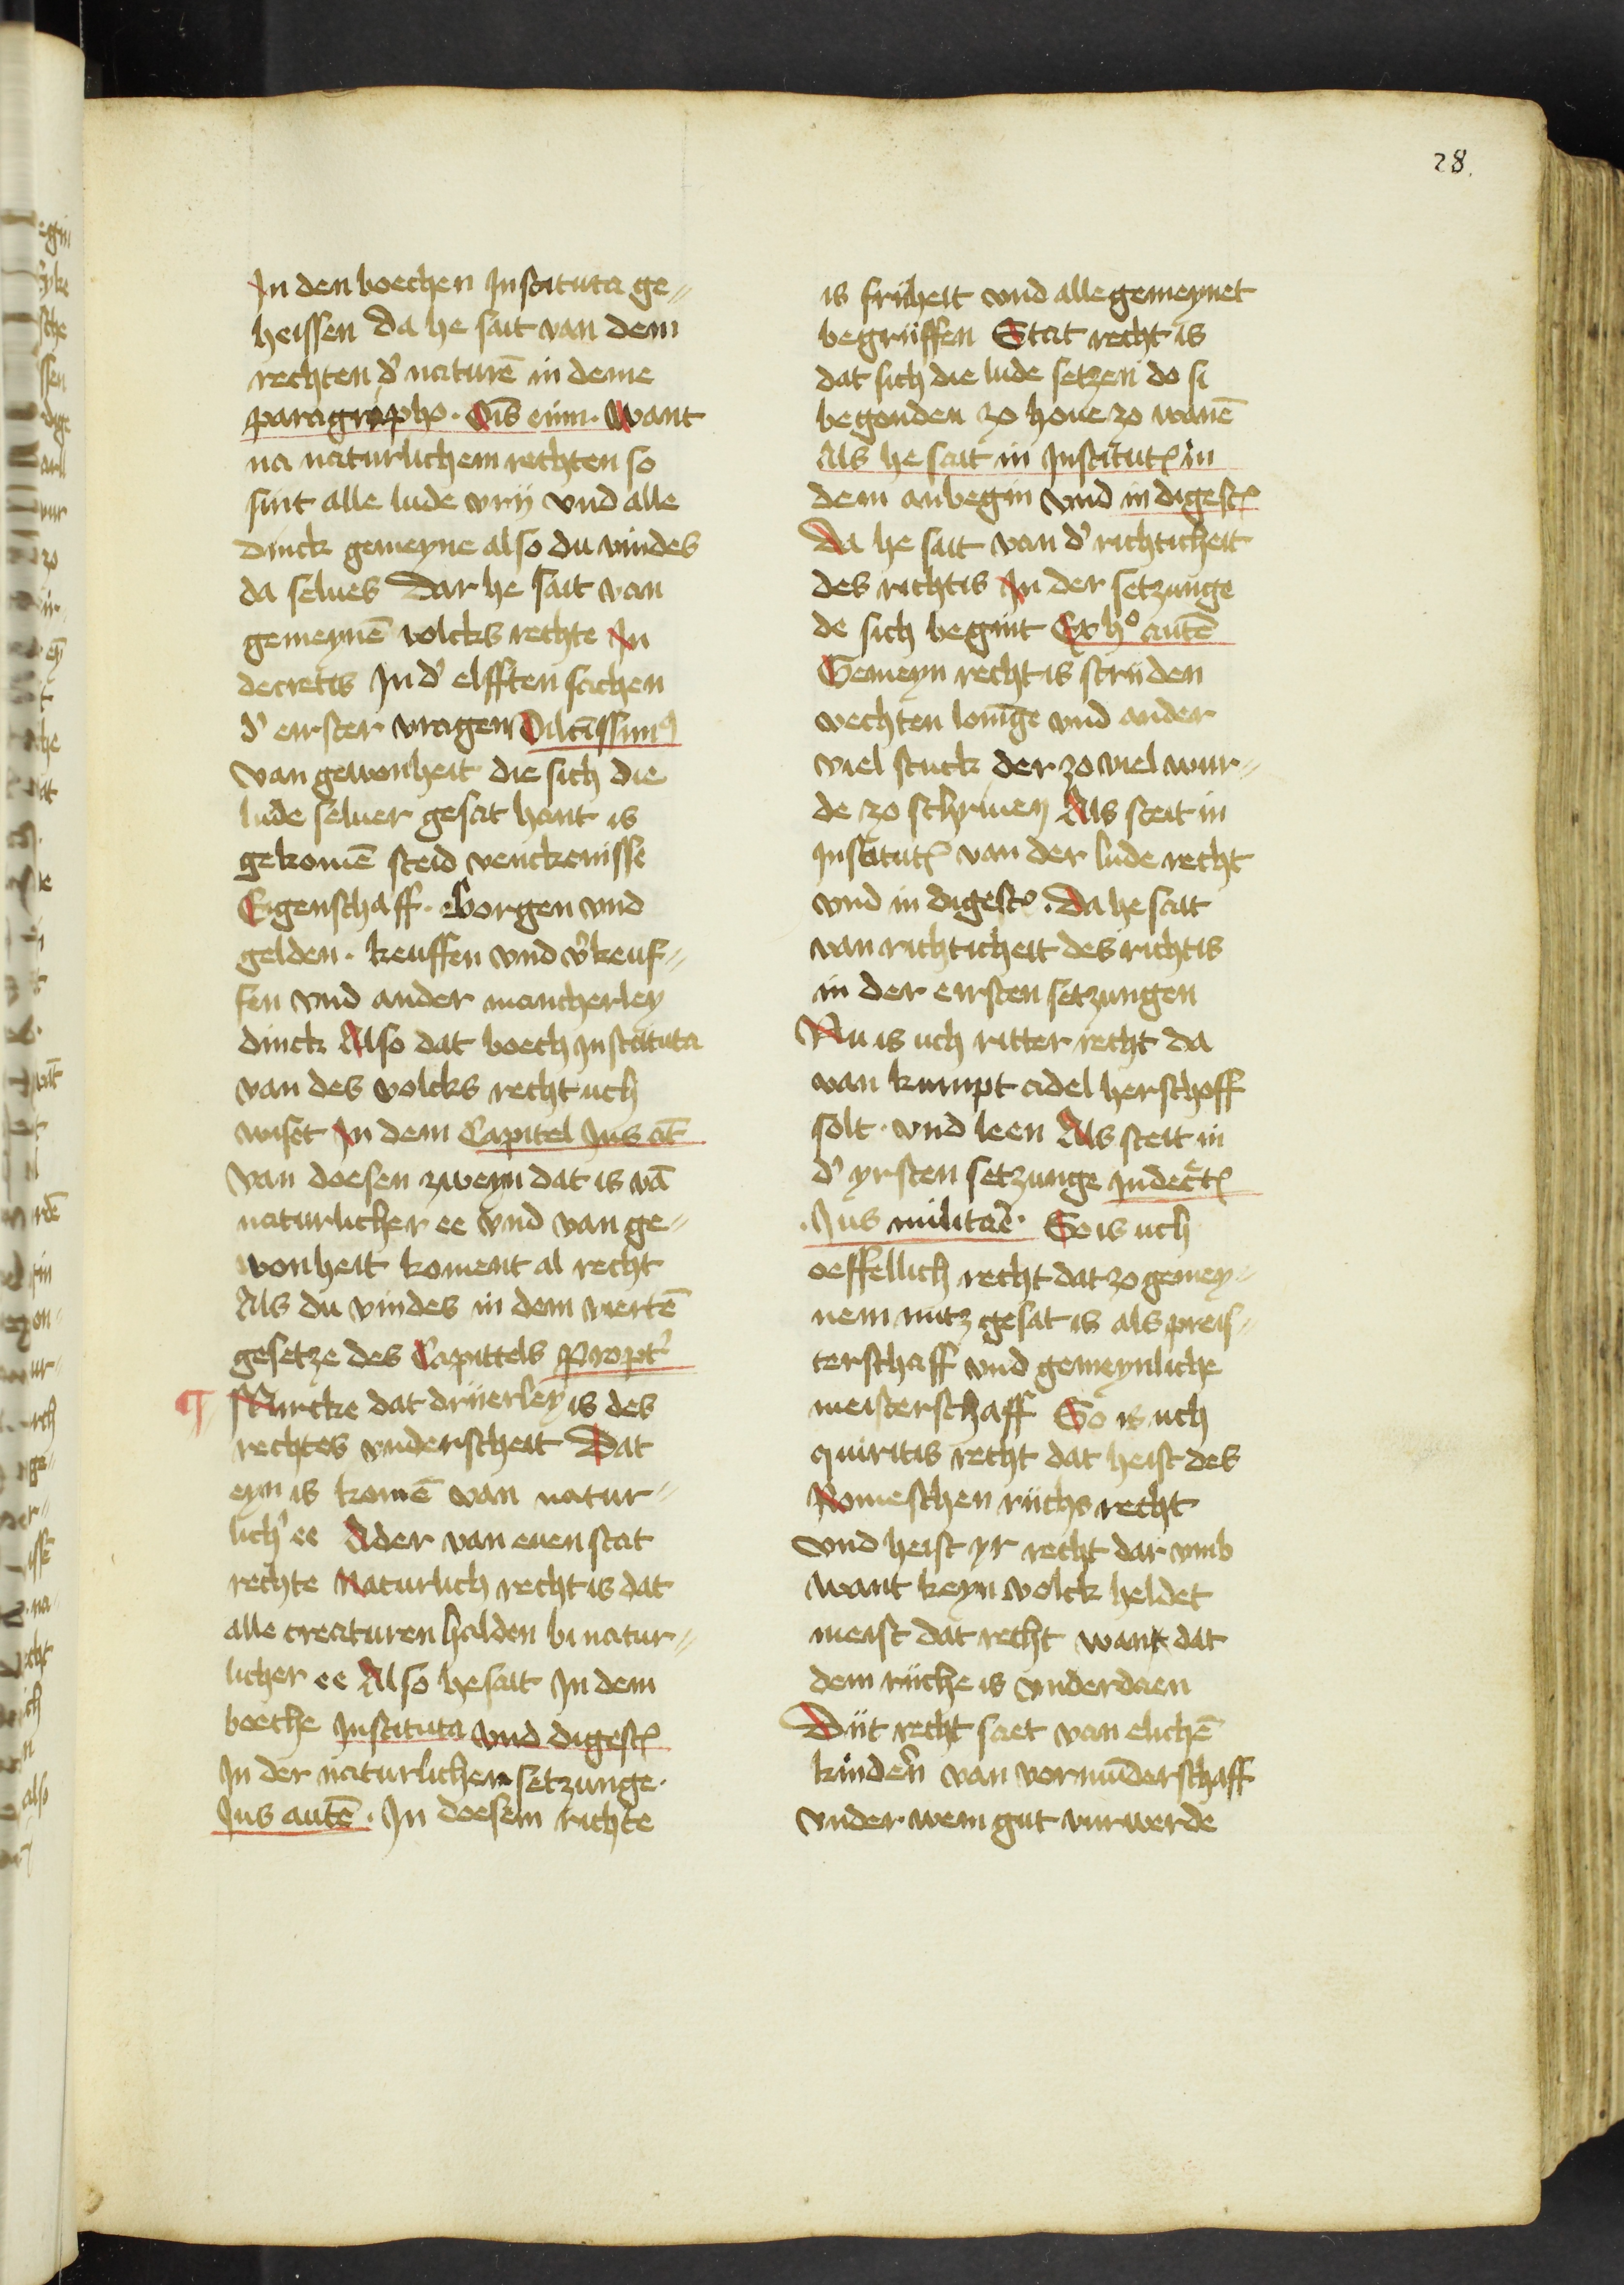 28.
In den boechen Instituta ge〃
heissen da he sait van dem
rechten d' naturē in deme
paragrapho. Oīs enim. Want
na naturlichem rechten so
sint alle lude vrij vnd alle
dinck gemeyne also du vindes
da selues Dar he sait van
gemeynē volcks rechte In
decretis In d' elfften sachen
d' eirster vragen Dilcīssimꝰ
Van gewonheit die sich die
lude seluer gesat hant is
gekomē steid venckenisse
Eigenschaff. Borgen vnd
gelden. keuffen vnd v'keuf〃
fen vnd ander mancherley
dinck Also dat boech instituta
van des volcks recht uch
wiset In dem Capitel Jus at̄
Van doesen zweyn dat is vā
naturlicher ee vnd van ge〃
wonheit koment al recht
Als du vindes in dem viertē
gesetze des Capittels Propt'
¶ Mircke dat drijerley is des
rechtes vnderscheit Dat
eyn is komē van natur〃
lich' ee Ader van euen stat
rechte Naturlich recht is dat
alle creaturen halden bi natur〃
licher ee Also he sait In dem
boeche Instituta vnd digest̄
In der naturlichen setzunge.
Jus autē. In doesem richte
is friheit vnd alle gemeynet
begriffen Stat recht is
dat sich die lude setzen do si
begonden zo houe zo wanē
Als he sait in Institut̄ in
dem anbegin vnd in digest̄
Da he sait van d' richticheit
des richtis In der setzunge
de sich begint Ex hº autē
Gemeyn recht is strijden
vechten lonīge vnd ander
viel stuck der zo viel wur〃
de zo schriuen Als steit in
institut̄ van der lude recht
vnd in digest̄. Da he sait
van richticheit des richtis
in der eirsten setzungen
Nu is uch ritter recht da
van kumpt adel herschoff
solt. vnd leen Als steit in
d' yrsten setzunge in decret̄
. Jus militaē. So is uch
oeffellich recht dat zo gemey〃
nem nutz gesat is als preis〃
terschaff vnd gemeynliche
meisterschaff So is uch
quiritis recht dat heist des
Romeschen rijchs recht
vnd heist yr recht dar vmb
want keyn volck heldet
meist dat recht want dat
dem rijche is vnderdaen
Dijt recht saet van elichē
kindern van vormūderschaff
vnder wem gut vurwerde